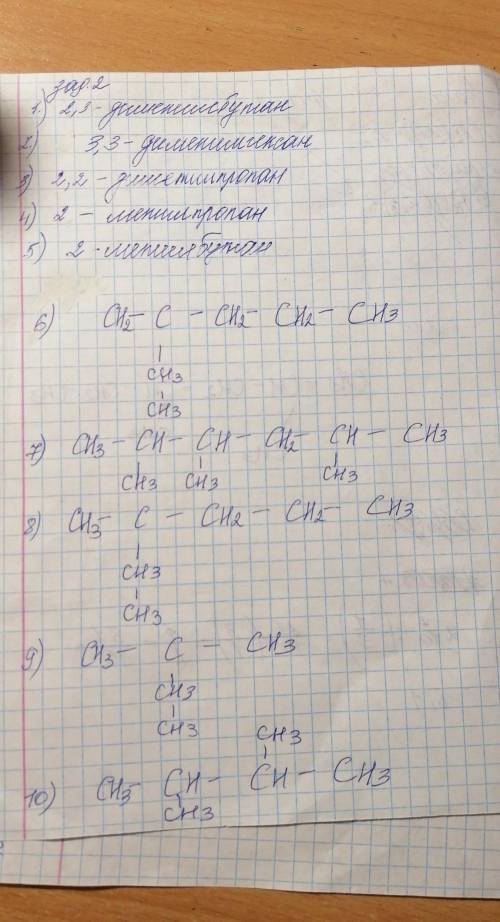 зад.2
1) 2,3-диметилбутан
2) 3,3-диметилгексан
3) 2,2-диметилпропан
4) 2-метилпропан
5) 2-метилбутан
6) CH2- C - CH2- CH2- CH3
CH3
CH3
7) CH3- CH- CH- CH2- CH- CH3
CH3 CH3 CH3
8) CH3- C - CH2- CH2- CH3
CH3
CH3
9) CH3- C - CH3
CH3
CH3
CH3
10) CH3- CH- CH- CH3
CH3